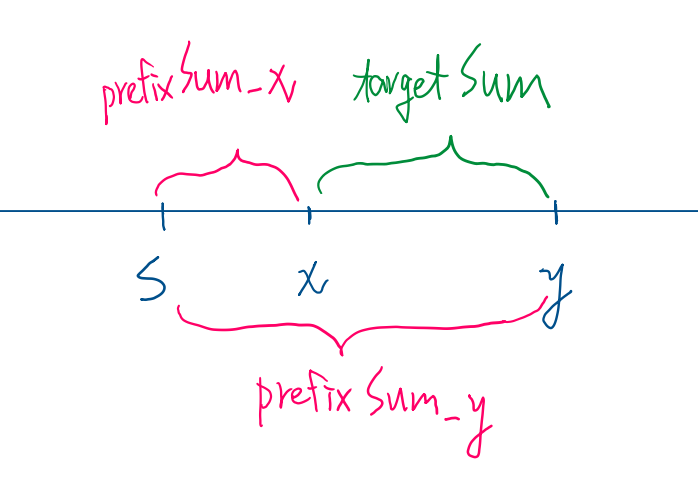 prefixSum_x targetSum
S x y
prefixSum_y